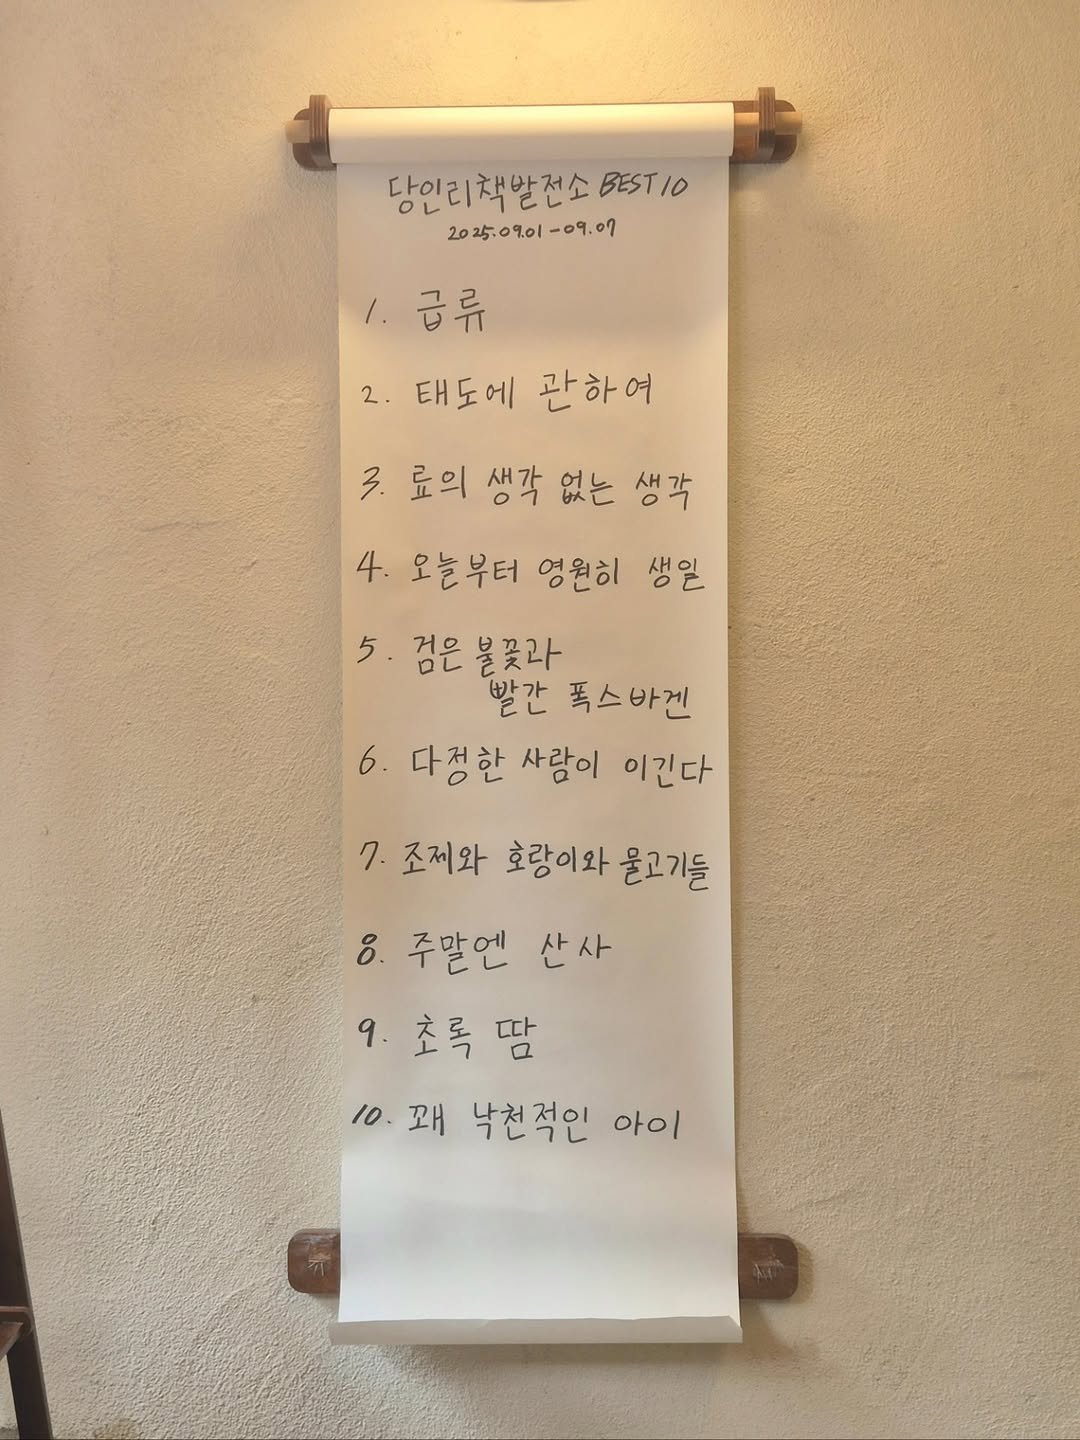 당인리책발전소 BEST 10
2025.09.01 - 09.07
1. 급류
2. 태도에 관하여
3. 료의 생각 없는 생각
4. 오늘부터 영원히 생일
5. 검은 불꽃과
빨간 폭스바겐
6. 다정한 사람이 이긴다
7. 조제와 호랑이와 물고기들
8. 주말엔 산사
9. 초록 땀
10. 꽤 낙천적인 아이